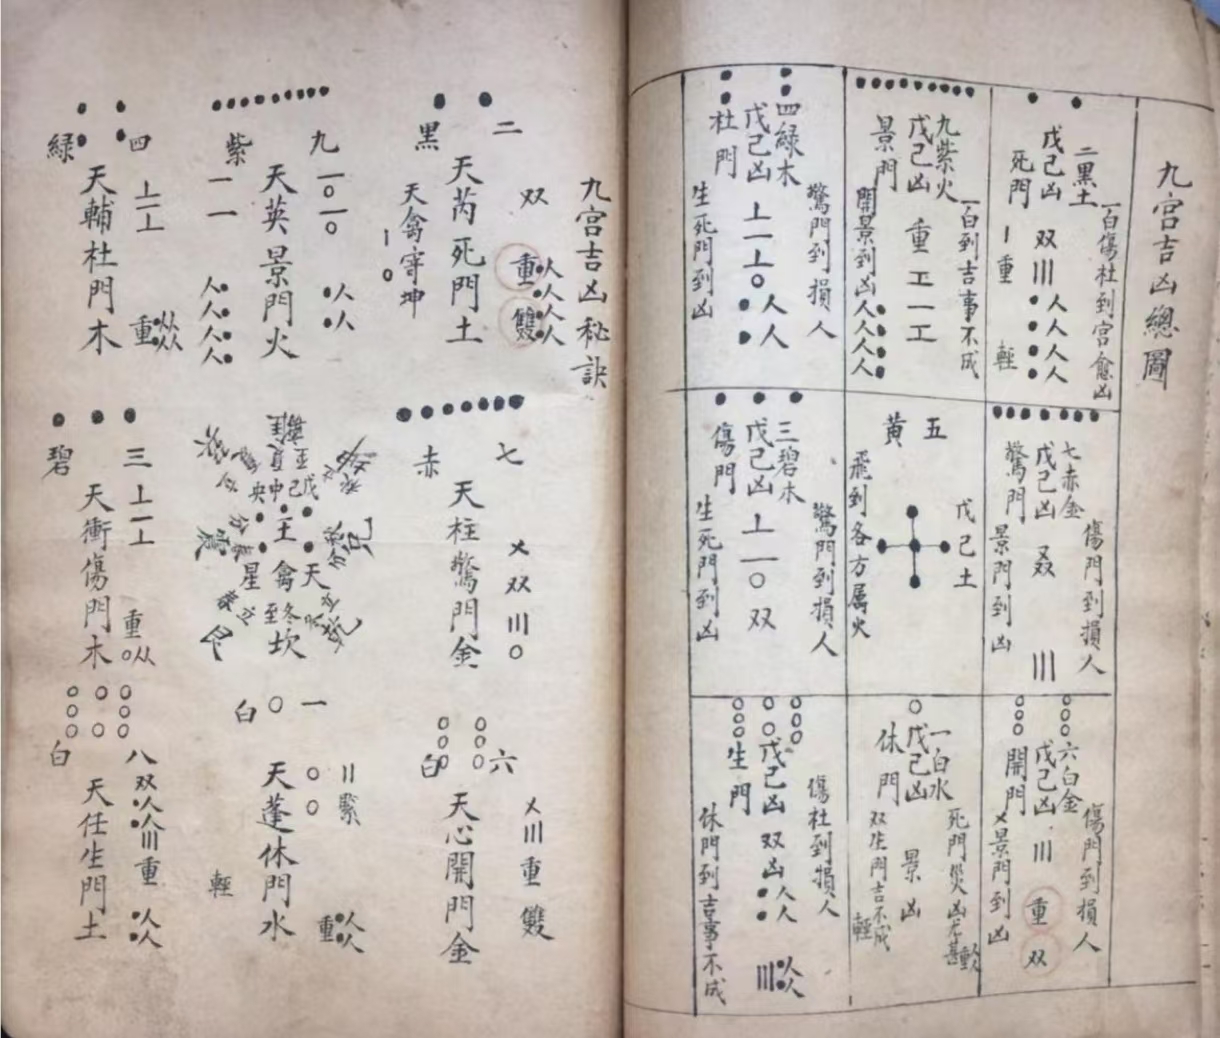 九宫吉凶總圖
二黑土
戊己凶
死門
一白傷杜到宮愈凶
双〣
重
輕
人人人人
九紫火
戊己凶
景門
一白到吉事不成
重工一工
開景到凶人人人人
四緑木
戊己凶
杜門
驚門到損人
上一上〇
人人
生死門到凶
七赤金
戊己凶
驚門
傷門到損人
〣
景門到凶
五黄
戊己土
飛到各方属火
三碧木
戊己凶
傷門
驚門到損人
上一一〇双
生死門到凶
六白金
戊己凶
開門
傷門到損人
〣重双
〤景門到凶
一白水
戊己凶
休門
死門災凶尤甚
景凶
双生門吉不成
輕
戊己凶
生門
傷杜到損人
双凶人人
〣人人
休門到吉事不成
九宫吉凶秘訣
二黑
双重雙人人人人
天芮死門土
天禽寄坤
一〇
九紫
一〇一〇人人
天英景門火
一一人人人人
四緑
上一上重
天輔杜門木
七赤
〤双〣〇
天柱驚門金
離
夏至
戊己中央
天禽星
冬至
坎
立春
艮
震
三碧
上一上重〇从
天衝傷門木
六白
〤〣重雙
天心開門金
一白
〢
〇〇
天蓬休門水
重人人
輕
八白
双人人〣重人人
天任生門土